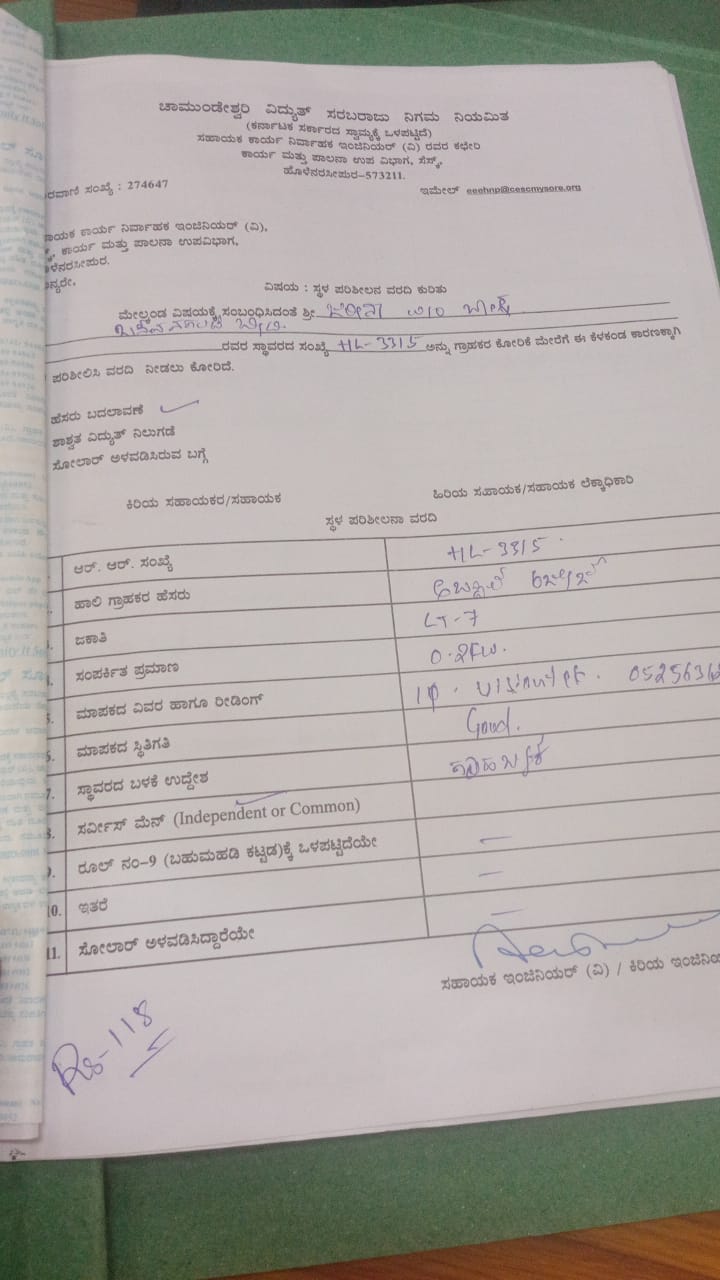 ಚಾಮುಂಡೇಶ್ವರಿ ವಿದ್ಯುತ್ ಸರಬರಾಜು ನಿಗಮ ನಿಯಮಿತ
(ಕರ್ನಾಟಕ ಸರ್ಕಾರದ ಸ್ವಾಮ್ಯಕ್ಕೆ ಒಳಪಟ್ಟಿದೆ)
ಸಹಾಯಕ ಕಾರ್ಯ ನಿರ್ವಾಹಕ ಇಂಜಿನಿಯರ್ (ವಿ) ರವರ ಕಛೇರಿ
ಕಾರ್ಯ ಮತ್ತು ಪಾಲನಾ ಉಪ ವಿಭಾಗ, ಸೆಸ್ಕ್,
ಹೊಳೆನರಸೀಪುರ-573211.
ರವಾಣಿ ಸಂಖ್ಯೆ : 274647 ಇಮೇಲ್ eeehnp@cescmysore.org
ಾಯಕ ಕಾರ್ಯ ನಿರ್ವಾಹಕ ಇಂಜಿನಿಯರ್ (ವಿ),
ಕಾರ್ಯ ಮತ್ತು ಪಾಲನಾ ಉಪವಿಭಾಗ,
ಳೆನರಸೀಪುರ.
ನ್ಯರೇ,
ವಿಷಯ : ಸ್ಥಳ ಪರಿಶೀಲನ ವರದಿ ಕುರಿತು
ಮೇಲ್ಕಂಡ ವಿಷಯಕ್ಕೆ ಸಂಬಂಧಿಸಿದಂತೆ ಶ್ರೀ
ರವರ ಸ್ಥಾವರದ ಸಂಖ್ಯೆ HL-3315 ಅನ್ನು ಗ್ರಾಹಕರ ಕೋರಿಕೆ ಮೇರೆಗೆ ಈ ಕೆಳಕಂಡ ಕಾರಣಕ್ಕಾಗಿ
ಪರಿಶೀಲಿಸಿ ವರದಿ ನೀಡಲು ಕೋರಿದೆ.
ಹೆಸರು ಬದಲಾವಣೆ
ಶಾಶ್ವತ ವಿದ್ಯುತ್ ನಿಲುಗಡೆ
ಸೋಲಾರ್ ಅಳವಡಿಸಿರುವ ಬಗ್ಗೆ
ಕಿರಿಯ ಸಹಾಯಕರ/ಸಹಾಯಕ ಹಿರಿಯ ಸಹಾಯಕ/ಸಹಾಯಕ ಲೆಕ್ಕಾಧಿಕಾರಿ
ಸ್ಥಳ ಪರಿಶೀಲನಾ ವರದಿ
ಆರ್. ಆರ್. ಸಂಖ್ಯೆ HL-3315.
ಹಾಲಿ ಗ್ರಾಹಕರ ಹೆಸರು
ಜಕಾತಿ LT-7
ಸಂಪರ್ಕಿತ ಪ್ರಮಾಣ 0.2KW.
ಮಾಪಕದ ವಿವರ ಹಾಗೂ ರೀಡಿಂಗ್ 1φ.
ಮಾಪಕದ ಸ್ಥಿತಿಗತಿ Good.
7. ಸ್ಥಾವರದ ಬಳಕೆ ಉದ್ದೇಶ
8. ಸರ್ವೀಸ್ ಮೆನ್ (Independent or Common)
9. ರೂಲ್ ನಂ-9 (ಬಹುಮಹಡಿ ಕಟ್ಟಡ)ಕ್ಕೆ ಒಳಪಟ್ಟಿದೆಯೇ —
10. ಇತರೆ —
11. ಸೋಲಾರ್ ಅಳವಡಿಸಿದ್ದಾರೆಯೇ —
ಸಹಾಯಕ ಇಂಜಿನಿಯರ್ (ವಿ) / ಕಿರಿಯ ಇಂಜಿನಿಯ
Rs-118